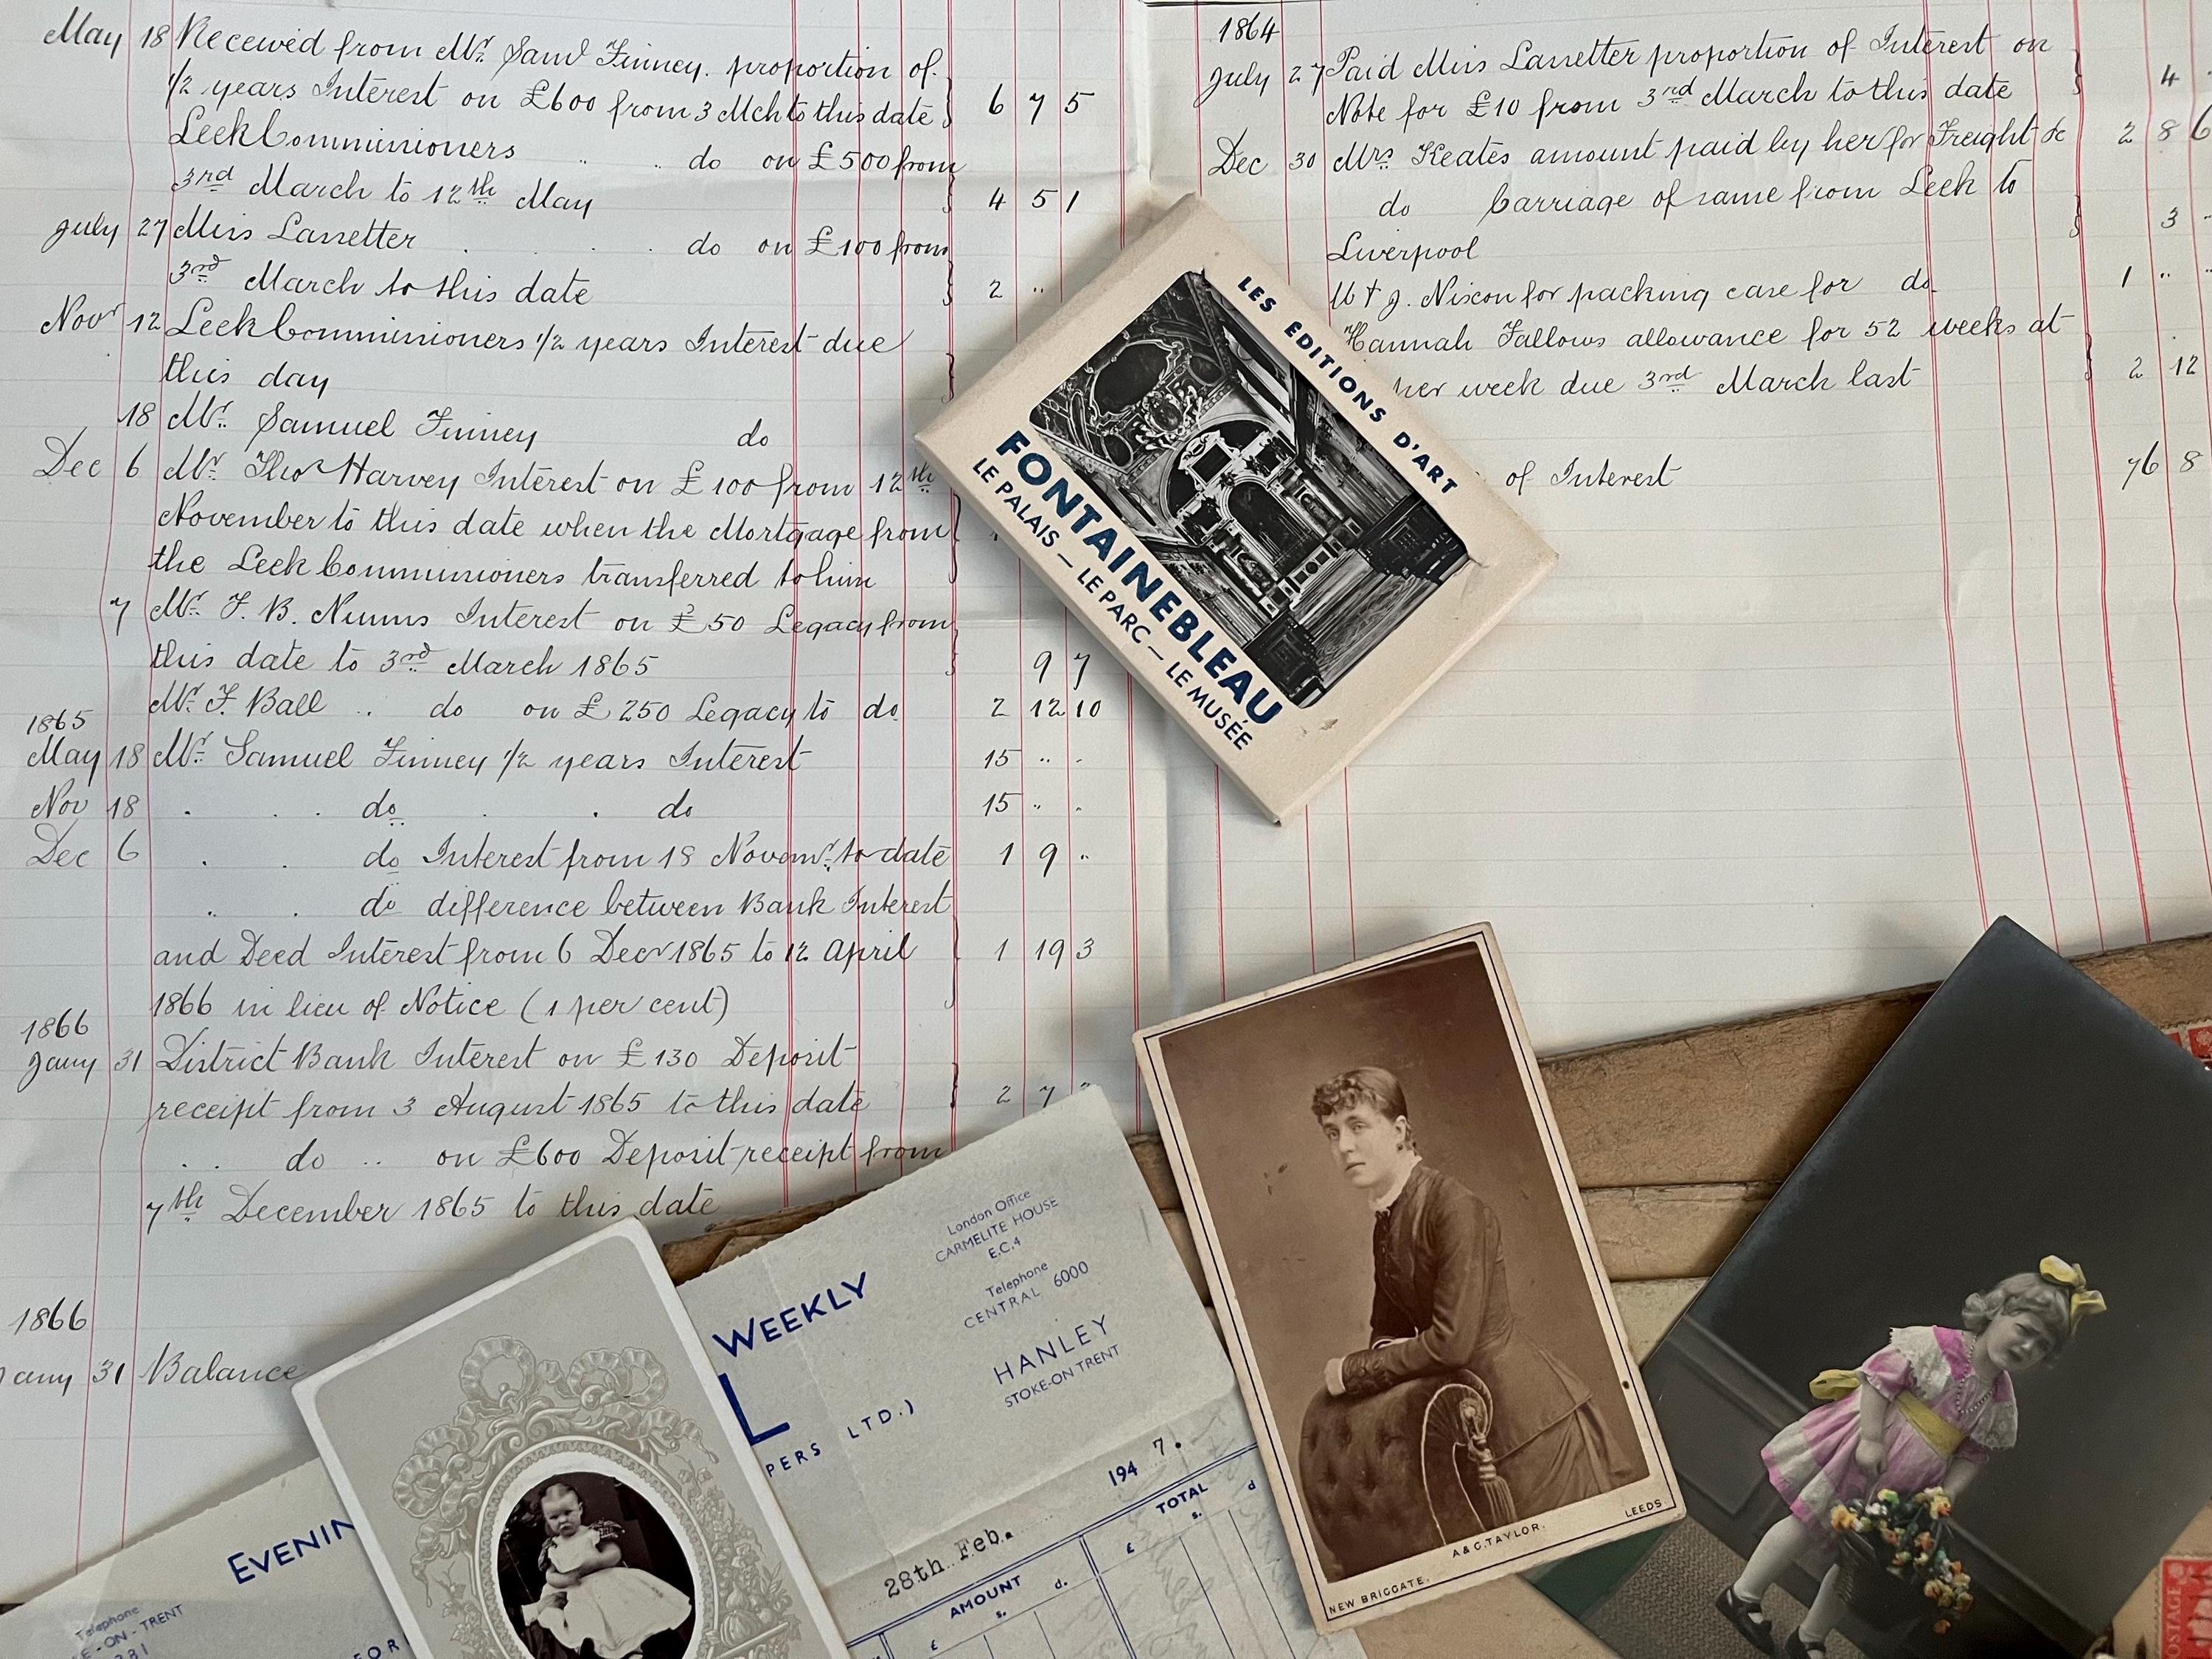 May 18 Received from Mr. Saml Finney. proportion of
1/2 years Interest on £600 from 3 Mch to this date 6 7 5
Leek Commissioners do on £500 from
3rd March to 12th May 4 5 1
July 27 Miss Lassetter do on £100 from
3rd March to this date 2 "
Novr 12 Leek Commissioners 1/2 years Interest due
this day
18 Mr. Samuel Finney do
Dec 6 Mr. Thos Harvey Interest on £100 from 12th
November to this date when the Mortgage from
the Leek Commissioners transferred to him
7 Mr. F. B. Nunns Interest on £50 Legacy from
this date to 3rd March 1865 9 7
Mr. F. Ball do on £250 Legacy to do 2 12 10
1865
May 18 Mr. Samuel Finney 1/2 years Interest 15 " "
Nov 18 " do do 15 " "
Dec 6 " do Interest from 18 Novemr. to date 1 9 "
" do difference between Bank Interest
and Deed Interest from 6 Decr 1865 to 12 April 1 19 3
1866 in lieu of Notice (1 per cent)
1866
Jany 31 District Bank Interest on £130 Deposit
receipt from 3 August 1865 to this date 2 7 "
do on £600 Deposit receipt from
7th December 1865 to this date
1866
Jany 31 Balance
1864
July 27 Paid Miss Lassetter proportion of Interest on
Note for £10 from 3rd March to this date 4
Dec 30 Mrs. Keates amount paid by her for Freight &c 2 8 6
do Carriage of same from Leek to
Liverpool 3 "
W & J. Nixon for packing case for do 1 " "
Hannah Fallows allowance for 52 weeks at
per week due 3rd March last 2 12
of Interest 76 8
LES EDITIONS D'ART
FONTAINEBLEAU
LE PALAIS — LE PARC — LE MUSÉE
WEEKLY
L
PERS LTD.)
London Office
CARMELITE HOUSE
E.C.4
Telephone
CENTRAL 6000
HANLEY
STOKE-ON TRENT
28th Feb. 1947.
AMOUNT
£ s. d.
TOTAL
£ s. d
EVENIN
Telephone
KE-ON-TRENT
A & C. TAYLOR.
NEW BRIGGATE.
LEEDS.
POSTAGE